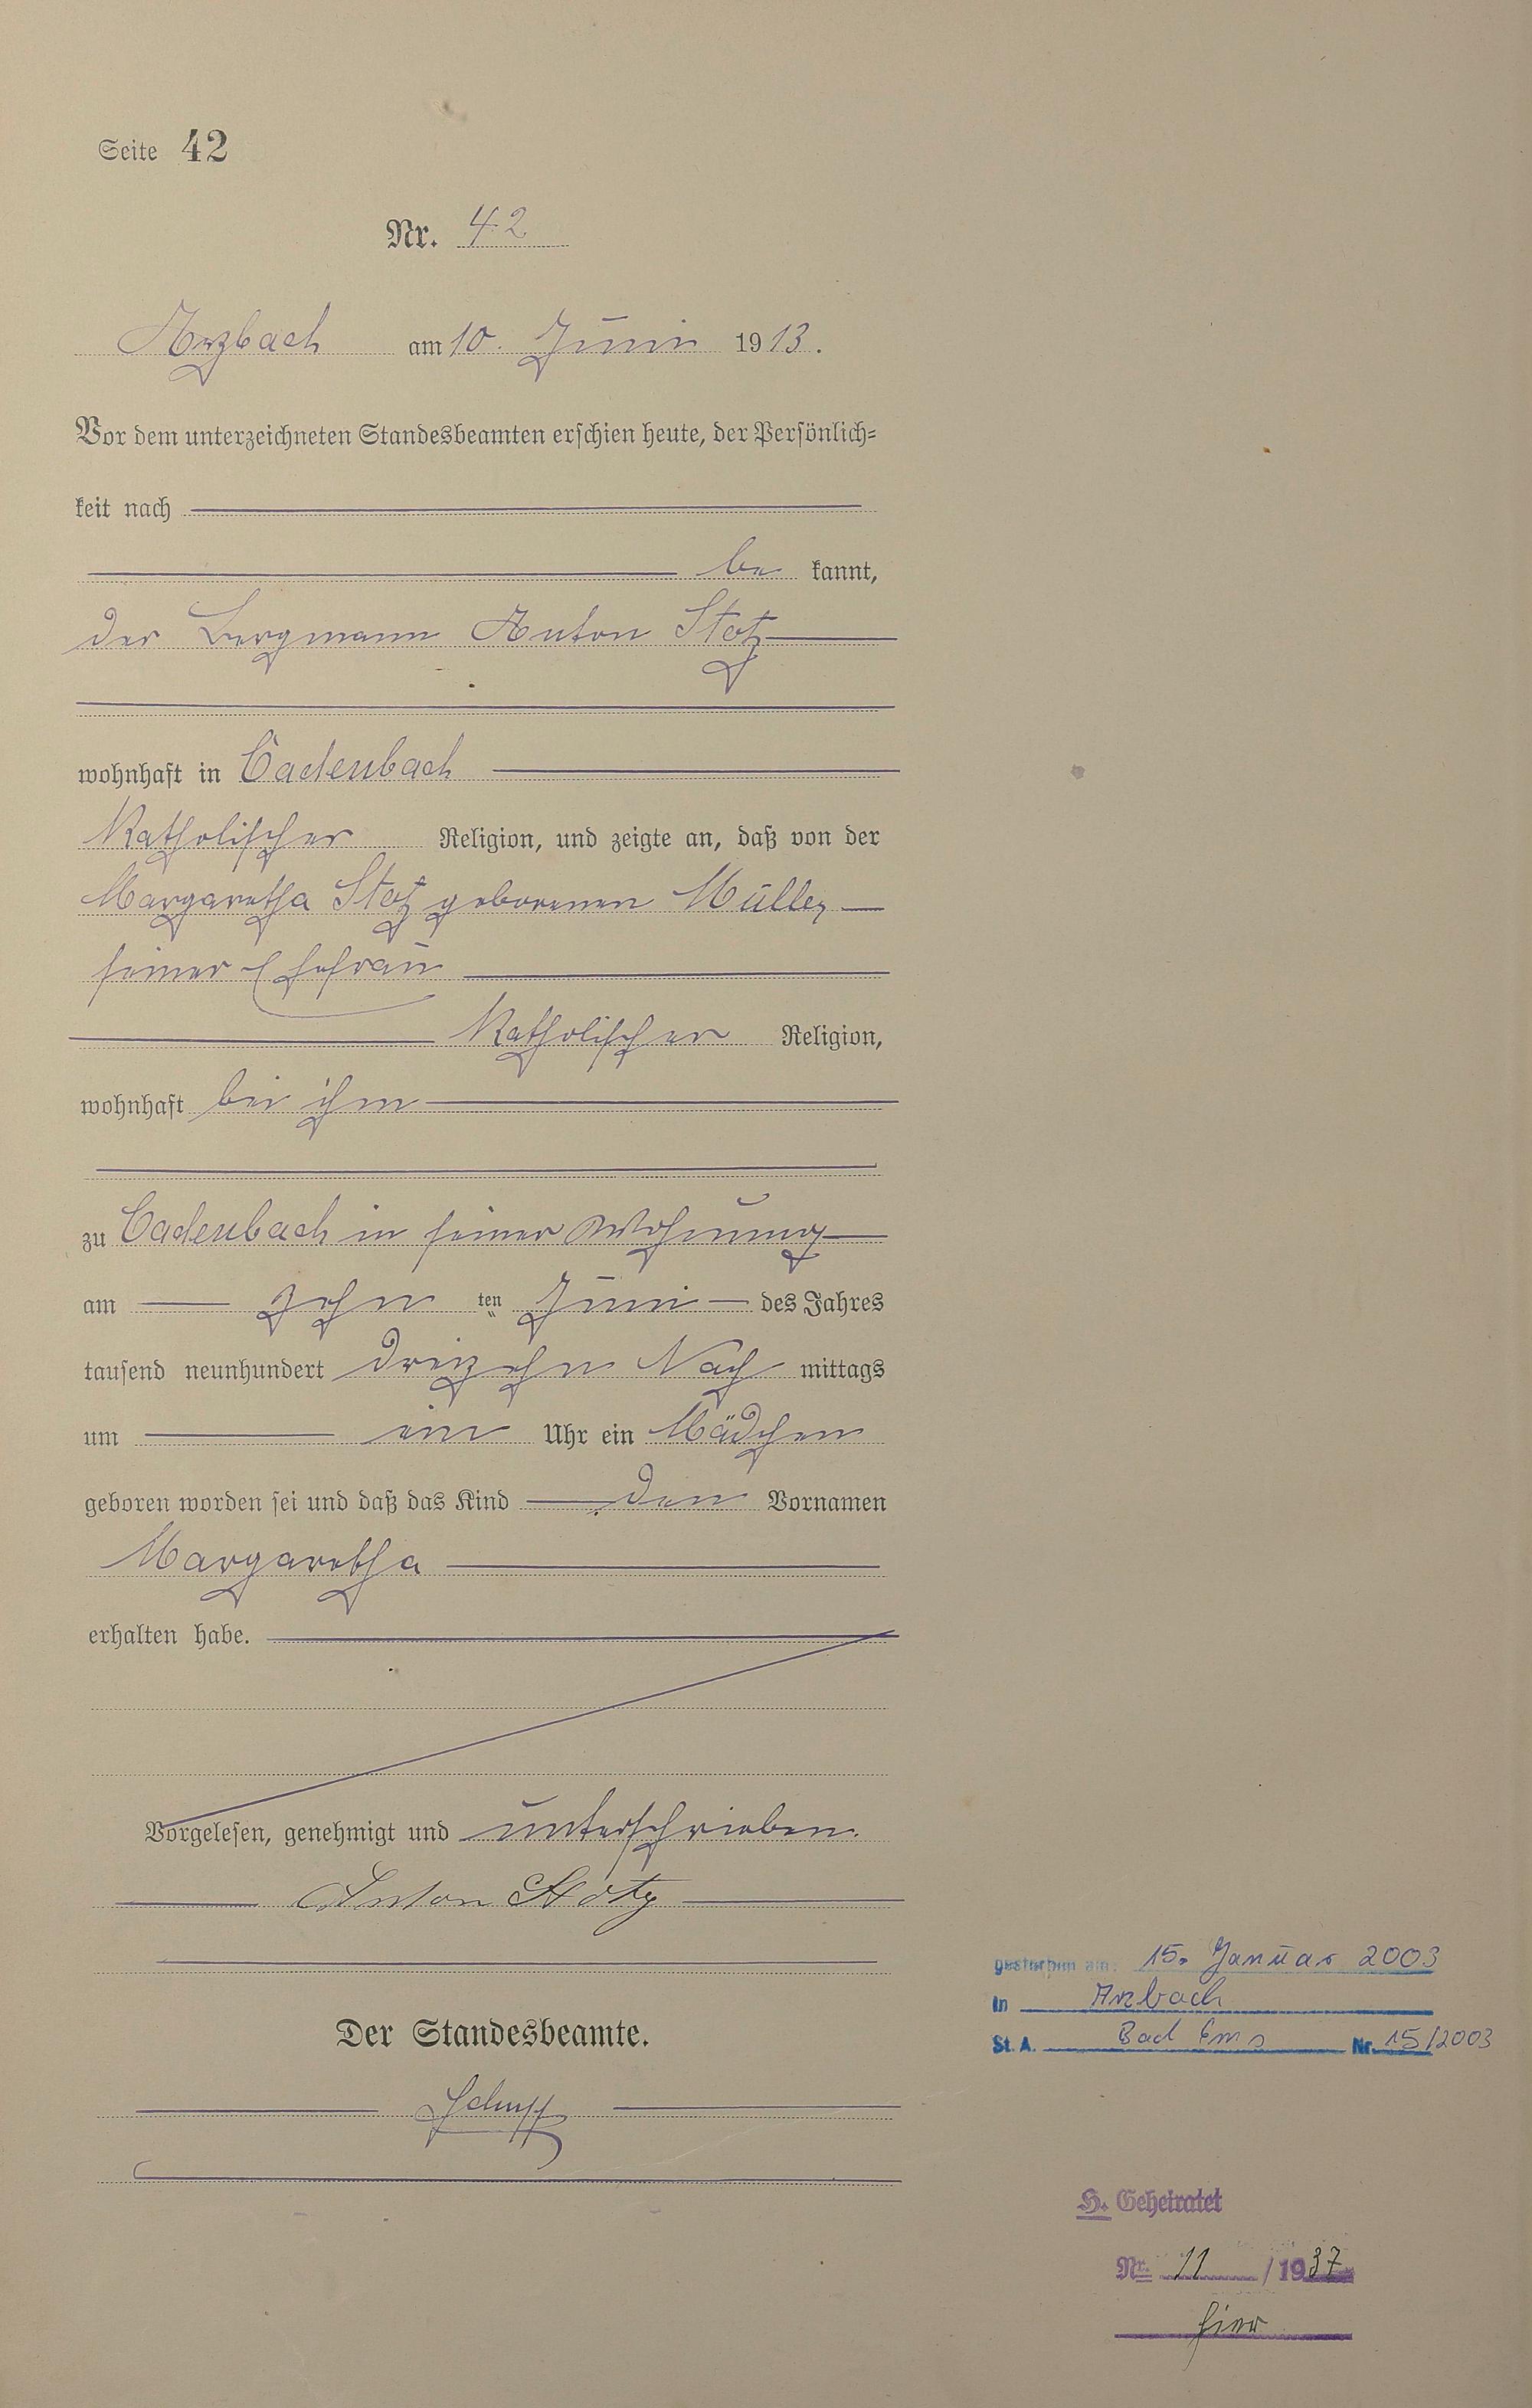 Seite 42
Nr. 42
Arzbach am 10. Juni 1913.
Vor dem unterzeichneten Standesbeamten erschien heute, der Persönlich-
keit nach
be kannt,
der Bergmann Anton Stotz
wohnhaft in Cadenbach
Katholischer Religion, und zeigte an, daß von der
Margaretha Stotz geborenen Müller
seiner Ehefrau
Katholischer Religion,
wohnhaft bei ihm
zu Cadenbach in seiner Wohnung
am zehn ten Juni des Jahres
tausend neunhundert dreizehn Nach mittags
um ein Uhr ein Mädchen
geboren worden sei und daß das Kind den Vornamen
Margaretha
erhalten habe.
Vorgelesen, genehmigt und unterschrieben.
Anton Stotz
Der Standesbeamte.
gestorben am: 15. Januar 2003
in Arzbach
St. A. Bad Ems Nr. 15/2003
H. Geheiratet
Nr. 11 / 1937
hier